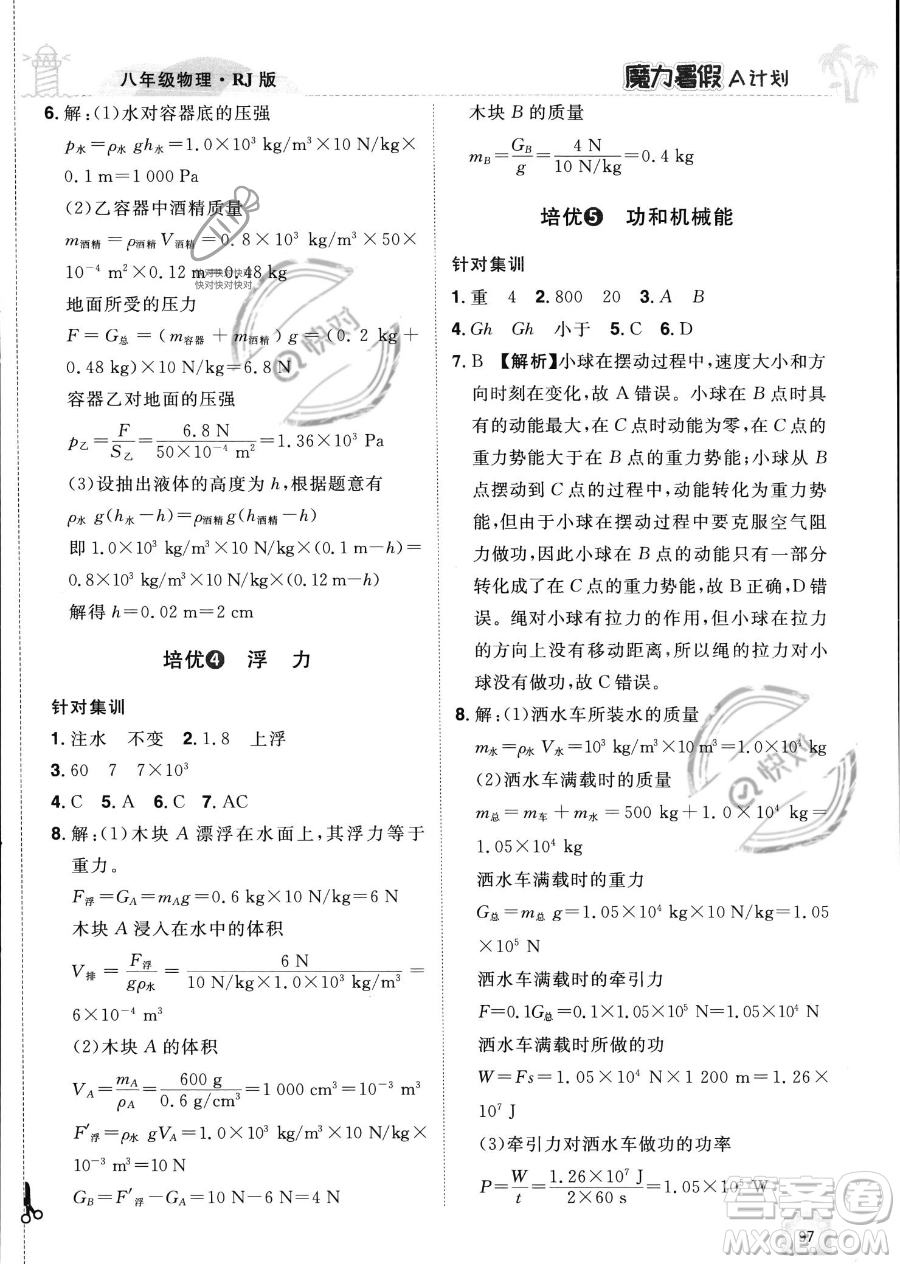 八年级物理·RJ版
魔力暑假 A计划
6. 解：(1)水对容器底的压强
p水＝ρ水 gh水＝1.0×10³ kg/m³×10 N/kg×
0.1 m＝1 000 Pa
(2)乙容器中酒精质量
m酒精＝ρ酒精V酒精＝0.8×10³ kg/m³×50×
10⁻⁴ m²×0.12 m＝0.48 kg
快对快对快对
快对快对快对
地面所受的压力
F＝G总＝(m容器＋m酒精)g＝(0.2 kg＋
0.48 kg)×10 N/kg＝6.8 N
容器乙对地面的压强
p乙＝F/S乙＝6.8 N/(50×10⁻⁴ m²)＝1.36×10³ Pa
(3)设抽出液体的高度为 h，根据题意有
ρ水 g(h水－h)＝ρ酒精g(h酒精－h)
即 1.0×10³ kg/m³×10 N/kg×(0.1 m－h)＝
0.8×10³ kg/m³×10 N/kg×(0.12 m－h)
解得 h＝0.02 m＝2 cm
培优4 浮 力
针对集训
1. 注水 不变 2. 1.8 上浮
3. 60 7 7×10³
4. C 5. A 6. C 7. AC
8. 解：(1)木块 A 漂浮在水面上，其浮力等于
重力。
F浮＝GA＝mAg＝0.6 kg×10 N/kg＝6 N
木块 A 浸入在水中的体积
V排＝F浮/gρ水＝6 N/(10 N/kg×1.0×10³ kg/m³)＝
6×10⁻⁴ m³
(2)木块 A 的体积
VA＝mA/ρA＝600 g/(0.6 g/cm³)＝1 000 cm³＝10⁻³ m³
F′浮＝ρ水 gVA＝1.0×10³ kg/m³×10 N/kg×
10⁻³ m³＝10 N
GB＝F′浮－GA＝10 N－6 N＝4 N
木块 B 的质量
mB＝GB/g＝4 N/(10 N/kg)＝0.4 kg
培优5 功和机械能
针对集训
1. 重 4 2. 800 20 3. A B
4. Gh Gh 小于 5. C 6. D
7. B 【解析】小球在摆动过程中，速度大小和方
向时刻在变化，故 A 错误。小球在 B 点时具
有的动能最大，在 C 点时动能为零，在 C 点的
重力势能大于在 B 点的重力势能；小球从 B
点摆动到 C 点过程中，动能转化为重力势
能，但由于小球在摆动过程中要克服空气阻
力做功，因此小球在 B 点的动能一部分
转化成了在 C 点的重力势能，故 B 正确，D 错
误。绳对小球有拉力的作用，但小球在拉力
的方向上没有移动距离，所以绳的拉力对小
球没有做功，故 C 错误。
8. 解：(1)洒水车所装水的质量
m水＝ρ水 V水＝10³ kg/m³×10 m³＝1.0×10⁴ kg
(2)洒水车满载时的质量
m总＝m车＋m水＝500 kg＋1.0×10⁴ kg＝
1.05×10⁴ kg
洒水车满载时的重力
G总＝m总 g＝1.05×10⁴ kg×10 N/kg＝1.05
×10⁵ N
洒水车满载时的牵引力
F＝0.1G总＝0.1×1.05×10⁵ N＝1.05×10⁴ N
洒水车满载时所做的功
W＝Fs＝1.05×10⁴ N×1 200 m＝1.26×
10⁷ J
(3)牵引力对洒水车做功的功率
P＝W/t＝1.26×10⁷ J/(2×60 s)＝1.05×10⁵ W
97
快对
快对
答案圈
MXQE.COM